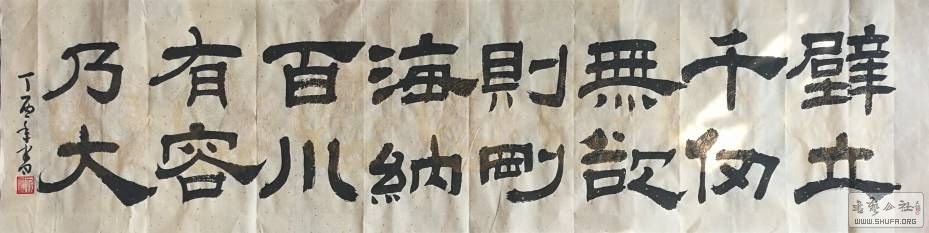 壁立
千仞
無欲
則剛
海納
百川
有容
乃大
丁酉年書
WWW.SHUFA.ORG